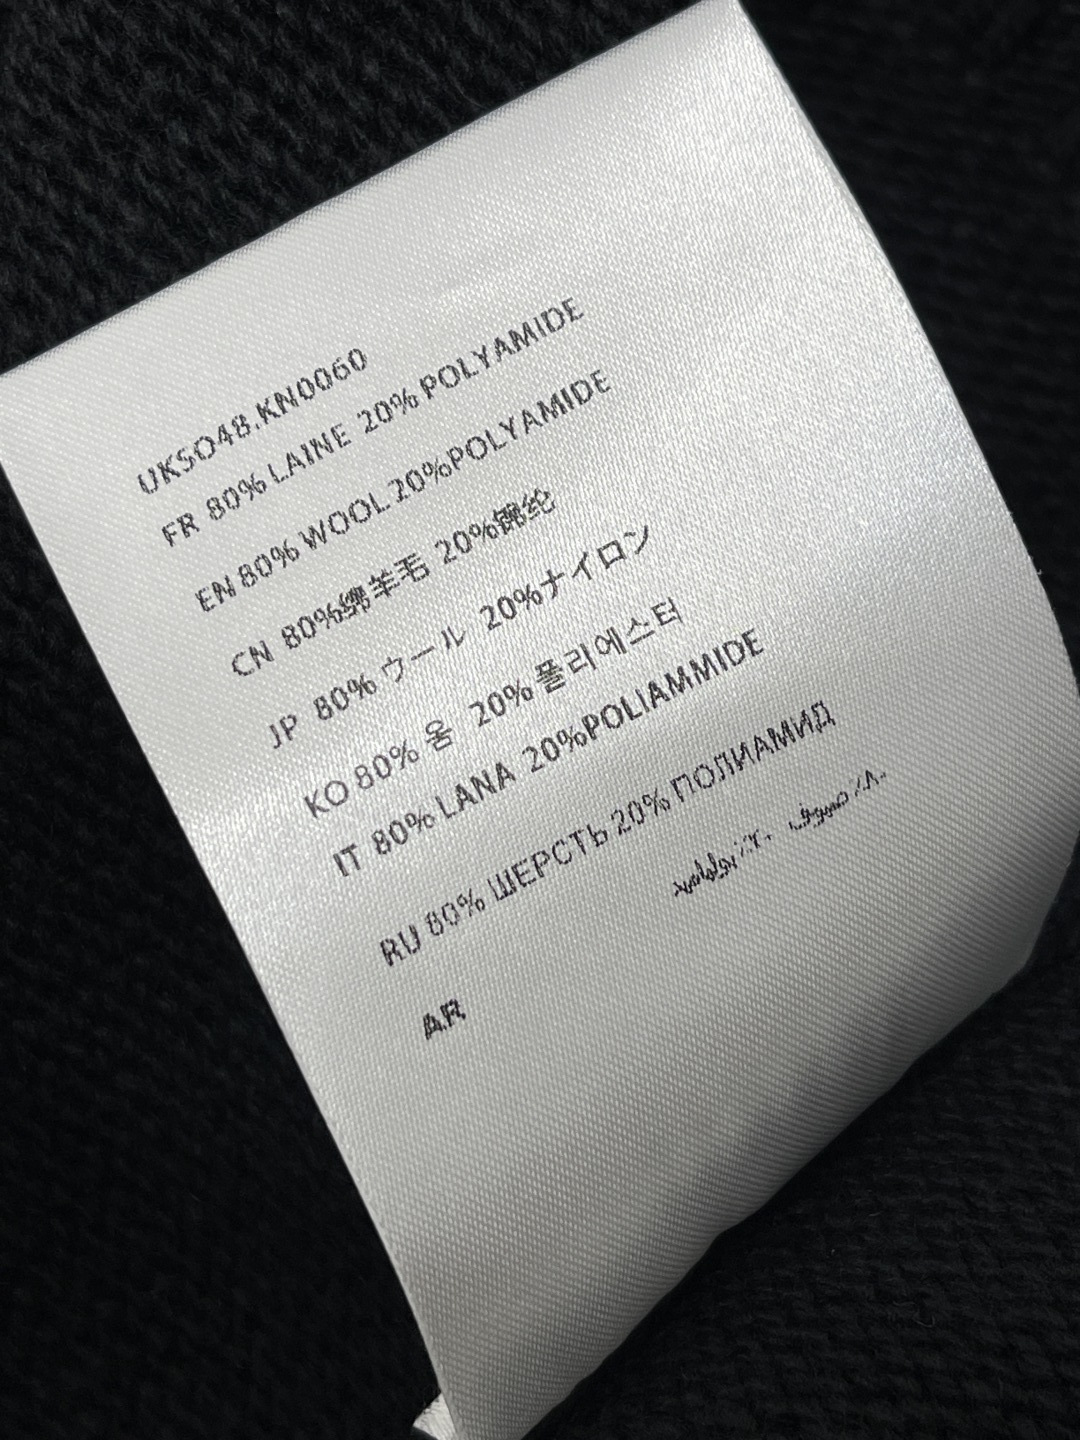 UKSO48.KN0060
FR 80% LAINE 20% POLYAMIDE
EN 80% WOOL 20%POLYAMIDE
CN 80%绵羊毛 20%锦纶
JP 80% ウール 20%ナイロン
KO 80% 옴 20% 폴리에스터
IT 80% LANA 20%POLIAMMIDE
RU 80% ШЕРСТЬ 20% ПОЛИАМИД
AR